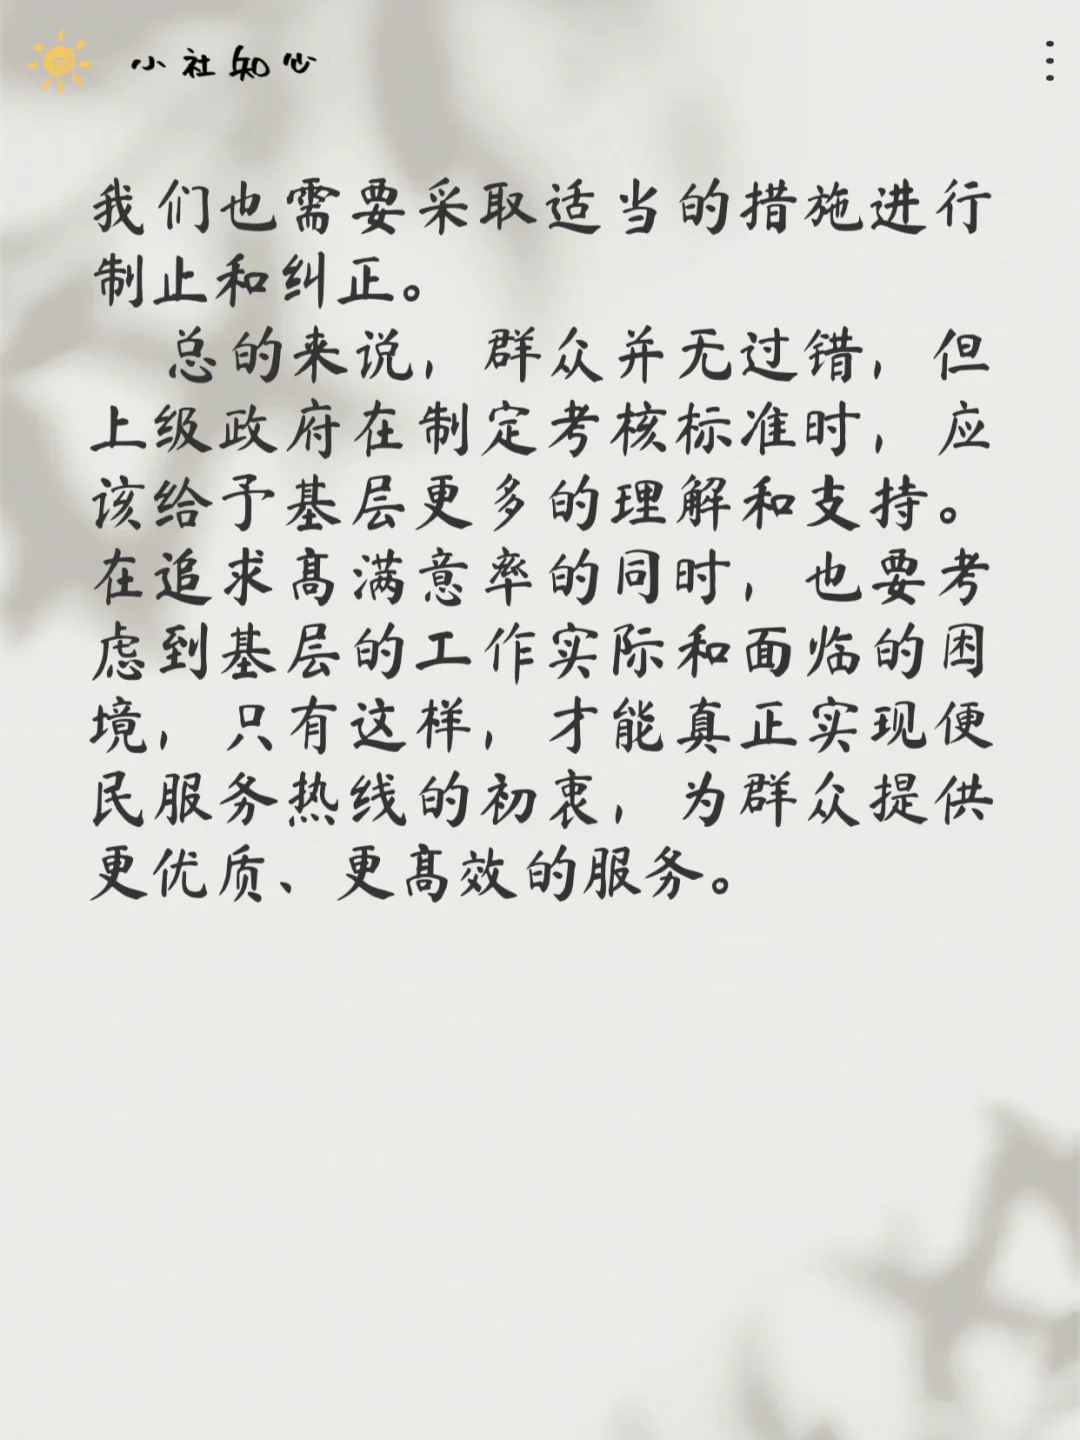 小社知心
我们也需要采取适当的措施进行
制止和纠正。
总的来说，群众并无过错，但
上级政府在制定考核标准时，应
该给予基层更多的理解和支持。
在追求高满意率的同时，也要考
虑到基层的工作实际和面临的困
境，只有这样，才能真正实现便
民服务热线的初衷，为群众提供
更优质、更高效的服务。